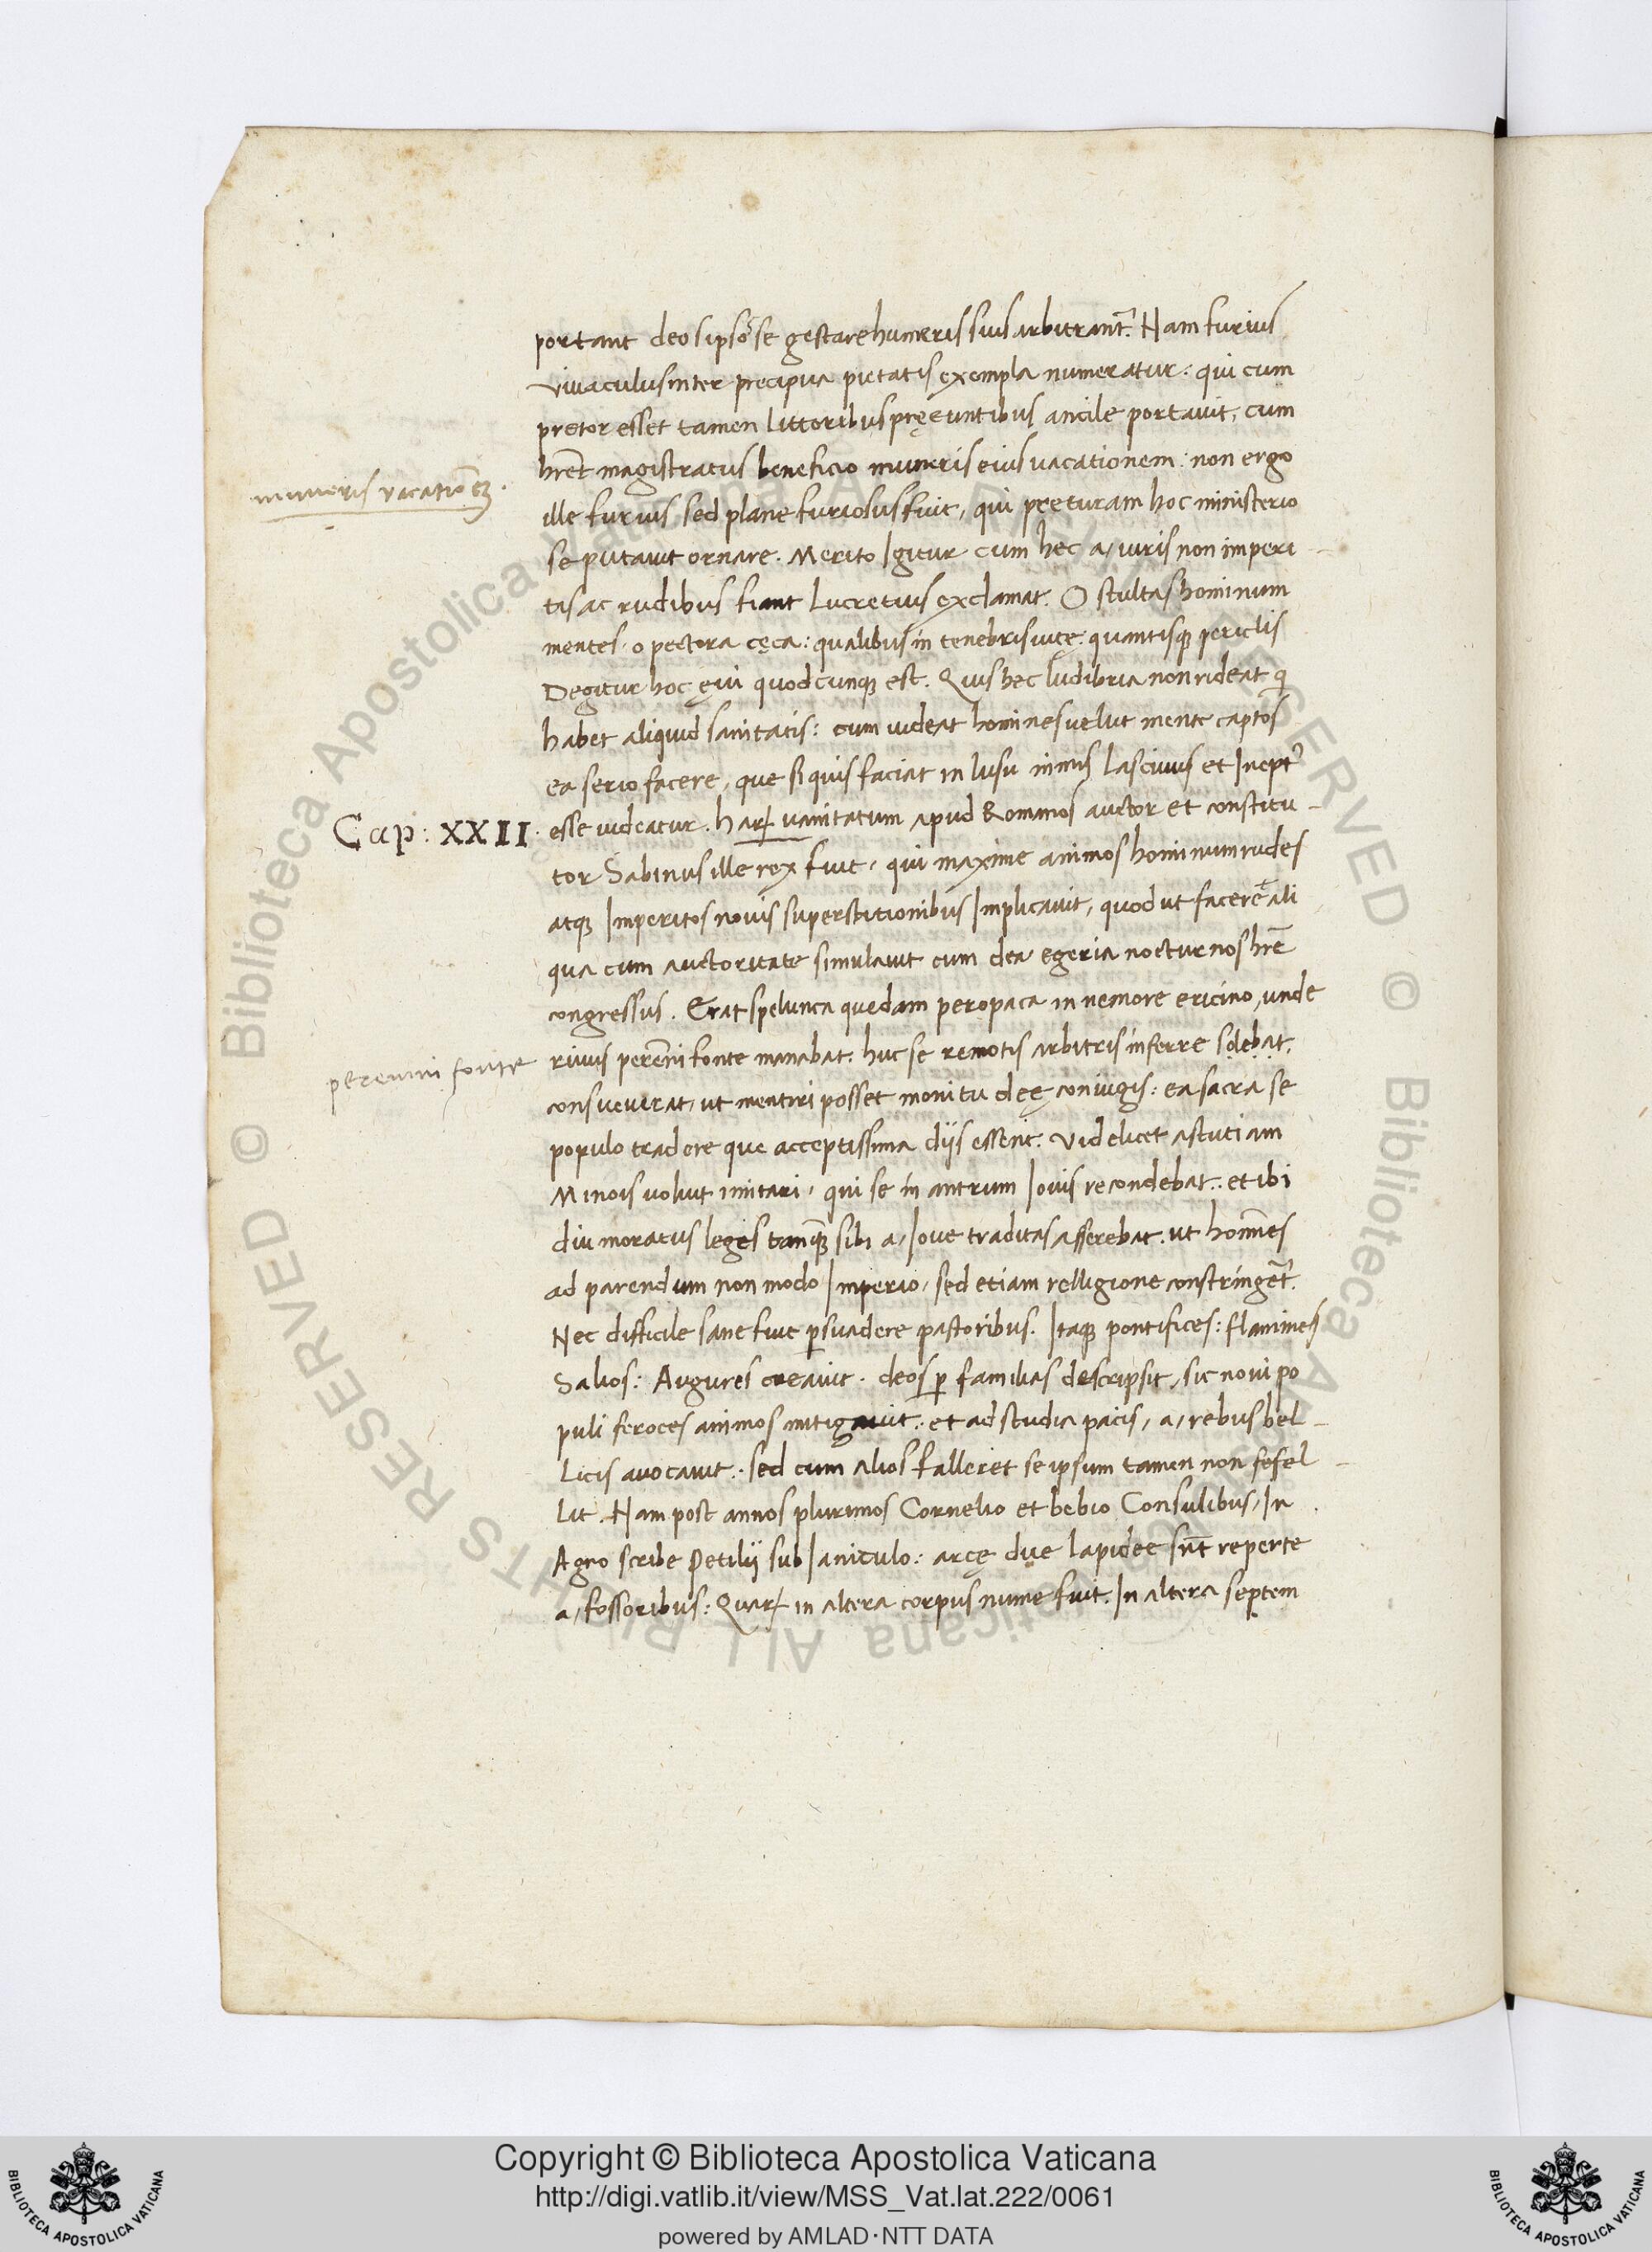 portant deos ipsos se gestare humeris suis arbitrant̃. Nam furius
vivaculus inter precipua pietatis exempla numeratur: qui cum
pretor esset tamen littoribus pręeuntibus ancile portavit, cum
hret̃ magistratus beneficio muneris eius vacationem: non ergo
muneris vacationẽ.
ille furius sed plane furiosus fuit, qui pręturam hoc ministerio
se putavit ornare. Merito Igitur cum hec a, viris non imperi
tas ac rudibus fiant Lucretius exclamat. O stultas hominum
mentes. o pectora cęca: qualibus in tenebris vitę. quantisqȝ periclis
Degitur hoc ęvi quodcunqȝ est. Quis hec ludibria non rideat q̃
habet aliquid sanitatis: cum videat homines velut mente captos
ea serio facere, que si quis faciat in lusu nimis lascivus et Inept᾽
Cap: XXII.
esse videatur. harꝝ vanitatum apud Romanos auctor et constitu
tor Sabinus ille rex fuit, qui maxime animos hominum rudes
atqȝ Imperitos novis superstitionibus Implicavit, quod ut faceret ali
qua cum auctoritate simulavit cum dea egeria nocturnos hrẽ
congressus. Erat spelunca quedam peropaca in nemore ericino, unde
rivus perenni fonte manabat. huc se remotis arbitris inferre solebat.
perenni fonte
consueverat, ut mentiri posset monitu deę coniugis: ea sacra se
populo tradere que acceptissima diis essent. videlicet astutiam
Minois voluit imitari, qui se in antrum Iovis recondebat. et ibi
diu moratus leges tanqȝ sibi a, Iove traditas afferebat. ut homĩes
ad parendum non modo Imperio, sed etiam relligione constringet̃.
Nec difficile sane fuit ꝑsuadere pastoribus. Itaqȝ pontifices: flamines
Salios: Augures creavit. deos ꝑ familias descripsit, sic novi po
puli feroces animos mitigavit. et ad studia pacis, a, rebus bel
licis avocavit. sed cum alios falleret se ipsum tamen non fefel
lit. Nam post annos plurimos Cornelio et bebio Consulibus, In
Agro scribe Petilii sub Ianiculo: arcę due lapidee sñt reperte
a, fossoribus: Quarꝝ in altera corpus nume fuit. In altera septem
Copyright © Biblioteca Apostolica Vaticana
http://digi.vatlib.it/view/MSS_Vat.lat.222/0061
powered by AMLAD·NTT DATA
BIBLIOTECA APOSTOLICA VATICANA
BIBLIOTECA APOSTOLICA VATICANA